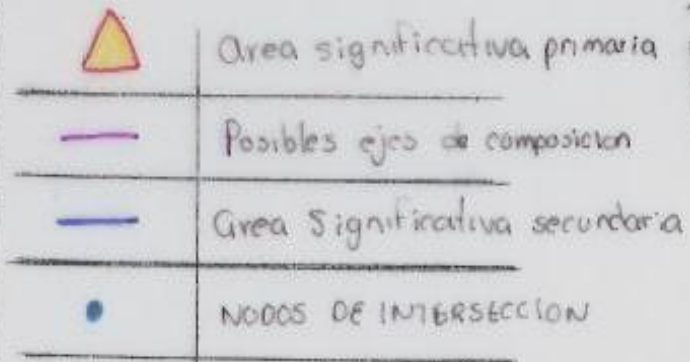 area significativa primaria
Posibles ejes de composicion
area Significativa secundaria
NODOS DE INTERSECCION